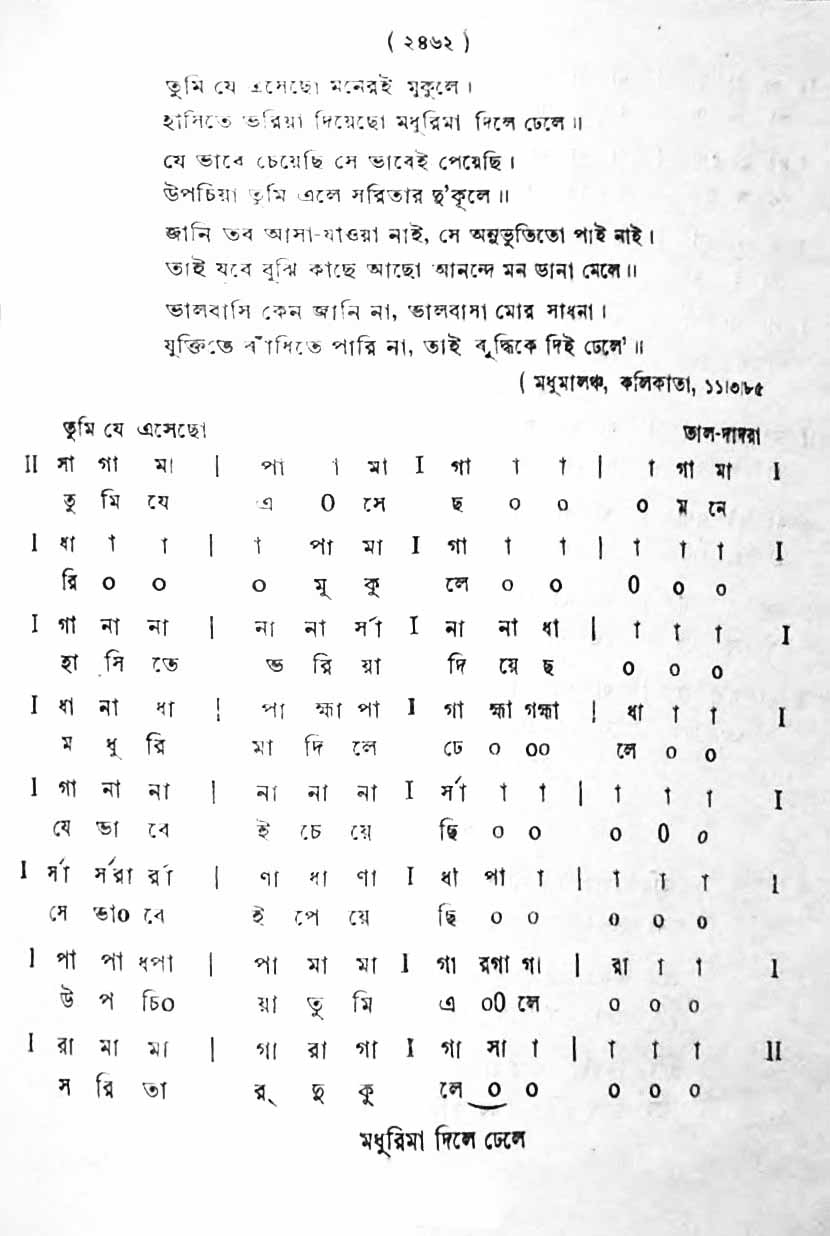 ( ২৪৬২ )
তুমি যে এসেছো মনেরই মুকুলে।
হাসিতে ভরিয়া দিয়েছো মধুরিমা দিলে ঢেলে॥
যে ভাবে চেয়েছি সে ভাবেই পেয়েছি।
উপচিয়া তুমি এলে সরিতার দু'কূলে॥
জানি তব আসা-যাওয়া নাই, সে অনুভূতিতো পাই নাই।
তাই যবে বুঝি কাছে আছো আনন্দে মন ডানা মেলে॥
ভালবাসি কেন জানি না, ভালবাসা মোর সাধনা।
যুক্তিতে বাঁধিতে পারি না, তাই বুদ্ধিকে দিই ঢেলে'॥
( মধুমালঞ্চ, কলিকাতা, ১১।৩।৮৫
তুমি যে এসেছো তাল-দাদরা
II সা গা মা | পা া মা I গা া া | া গা মা I
তু মি যে এ 0 সে ছ ০ ০ ০ ম নে
I ধা া া | া পা মা I গা া া | া া া I
রি ০ ০ ০ মু কু লে ০ ০ 0 ০ ০
I গা না না | না না র্সা I না না ধা | া া া I
হা সি তে ভ রি য়া দি য়ে ছ ০ ০ ০
I ধা না ধা | পা হ্মা পা I গা হ্মা গহ্মা | ধা া া I
ম ধু রি মা দি লে ঢে ০ ০০ লে ০ ০
I গা না না | না না না I র্সা া া | া া া I
যে ভা বে ই চে য়ে ছি ০ ০ ০ 0 ০
I র্সা র্সরা র্রা | ণা ধা ণা I ধা পা া | া া া I
সে ভা০ বে ই পে য়ে ছি ০ ০ ০ ০ ০
I পা পা ধপা | পা মা মা I গা রগা গা | রা া া I
উ প চি০ য়া তু মি এ ০0 লে ০ ০ ০
I রা মা মা | গা রা গা I গা সা া | া া া II
স রি তা র্ দু কু লে ০ ০ ০ ০ ০
মধুরিমা দিলে ঢেলে